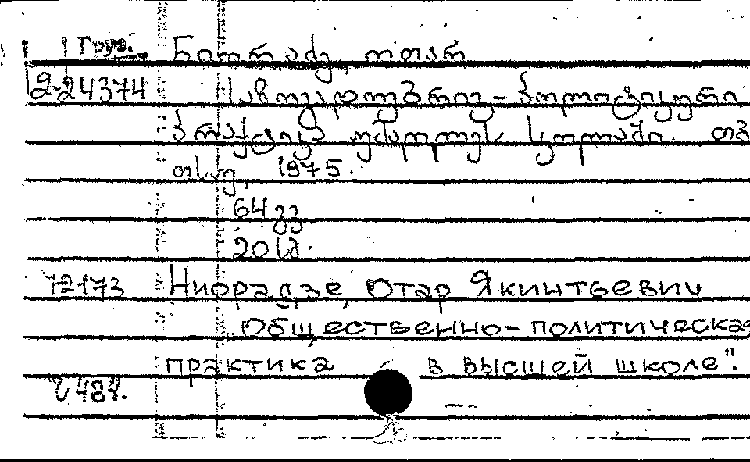 Груз. ნიორაძე, ოთარ
2-24374 საზოგადოებრივ-პოლიტიკური
პრაქტიკა უმაღლეს სკოლაში. თბ.
თსგუ, 1975.
64 გვ
20 კ.
12173 Ниорадзе, Отар Якинтьевич
"Общественно-политическая
практика в высшей школе".